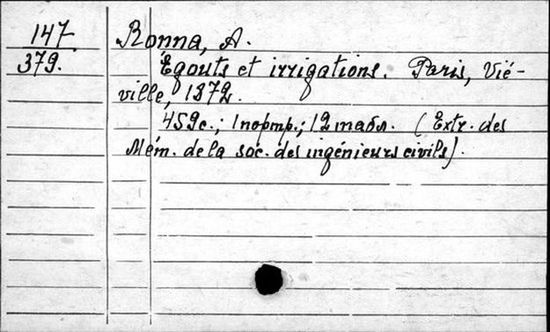 147. Ronna, A.
379. Égouts et irrigations. Paris, Vié-
ville, 1872.
459с.; 1 портр.; 12 табл. (Extr. des
Mém. de la soc. des ingénieurs civils).